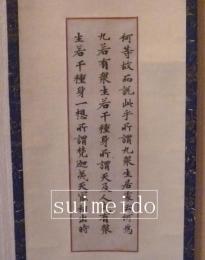 何等故而説此乎所謂九衆生居處云何爲
九若有衆生若干種身所謂天及人也或有衆
生若干種身一想所謂梵迦夷天最初出時
suimeido